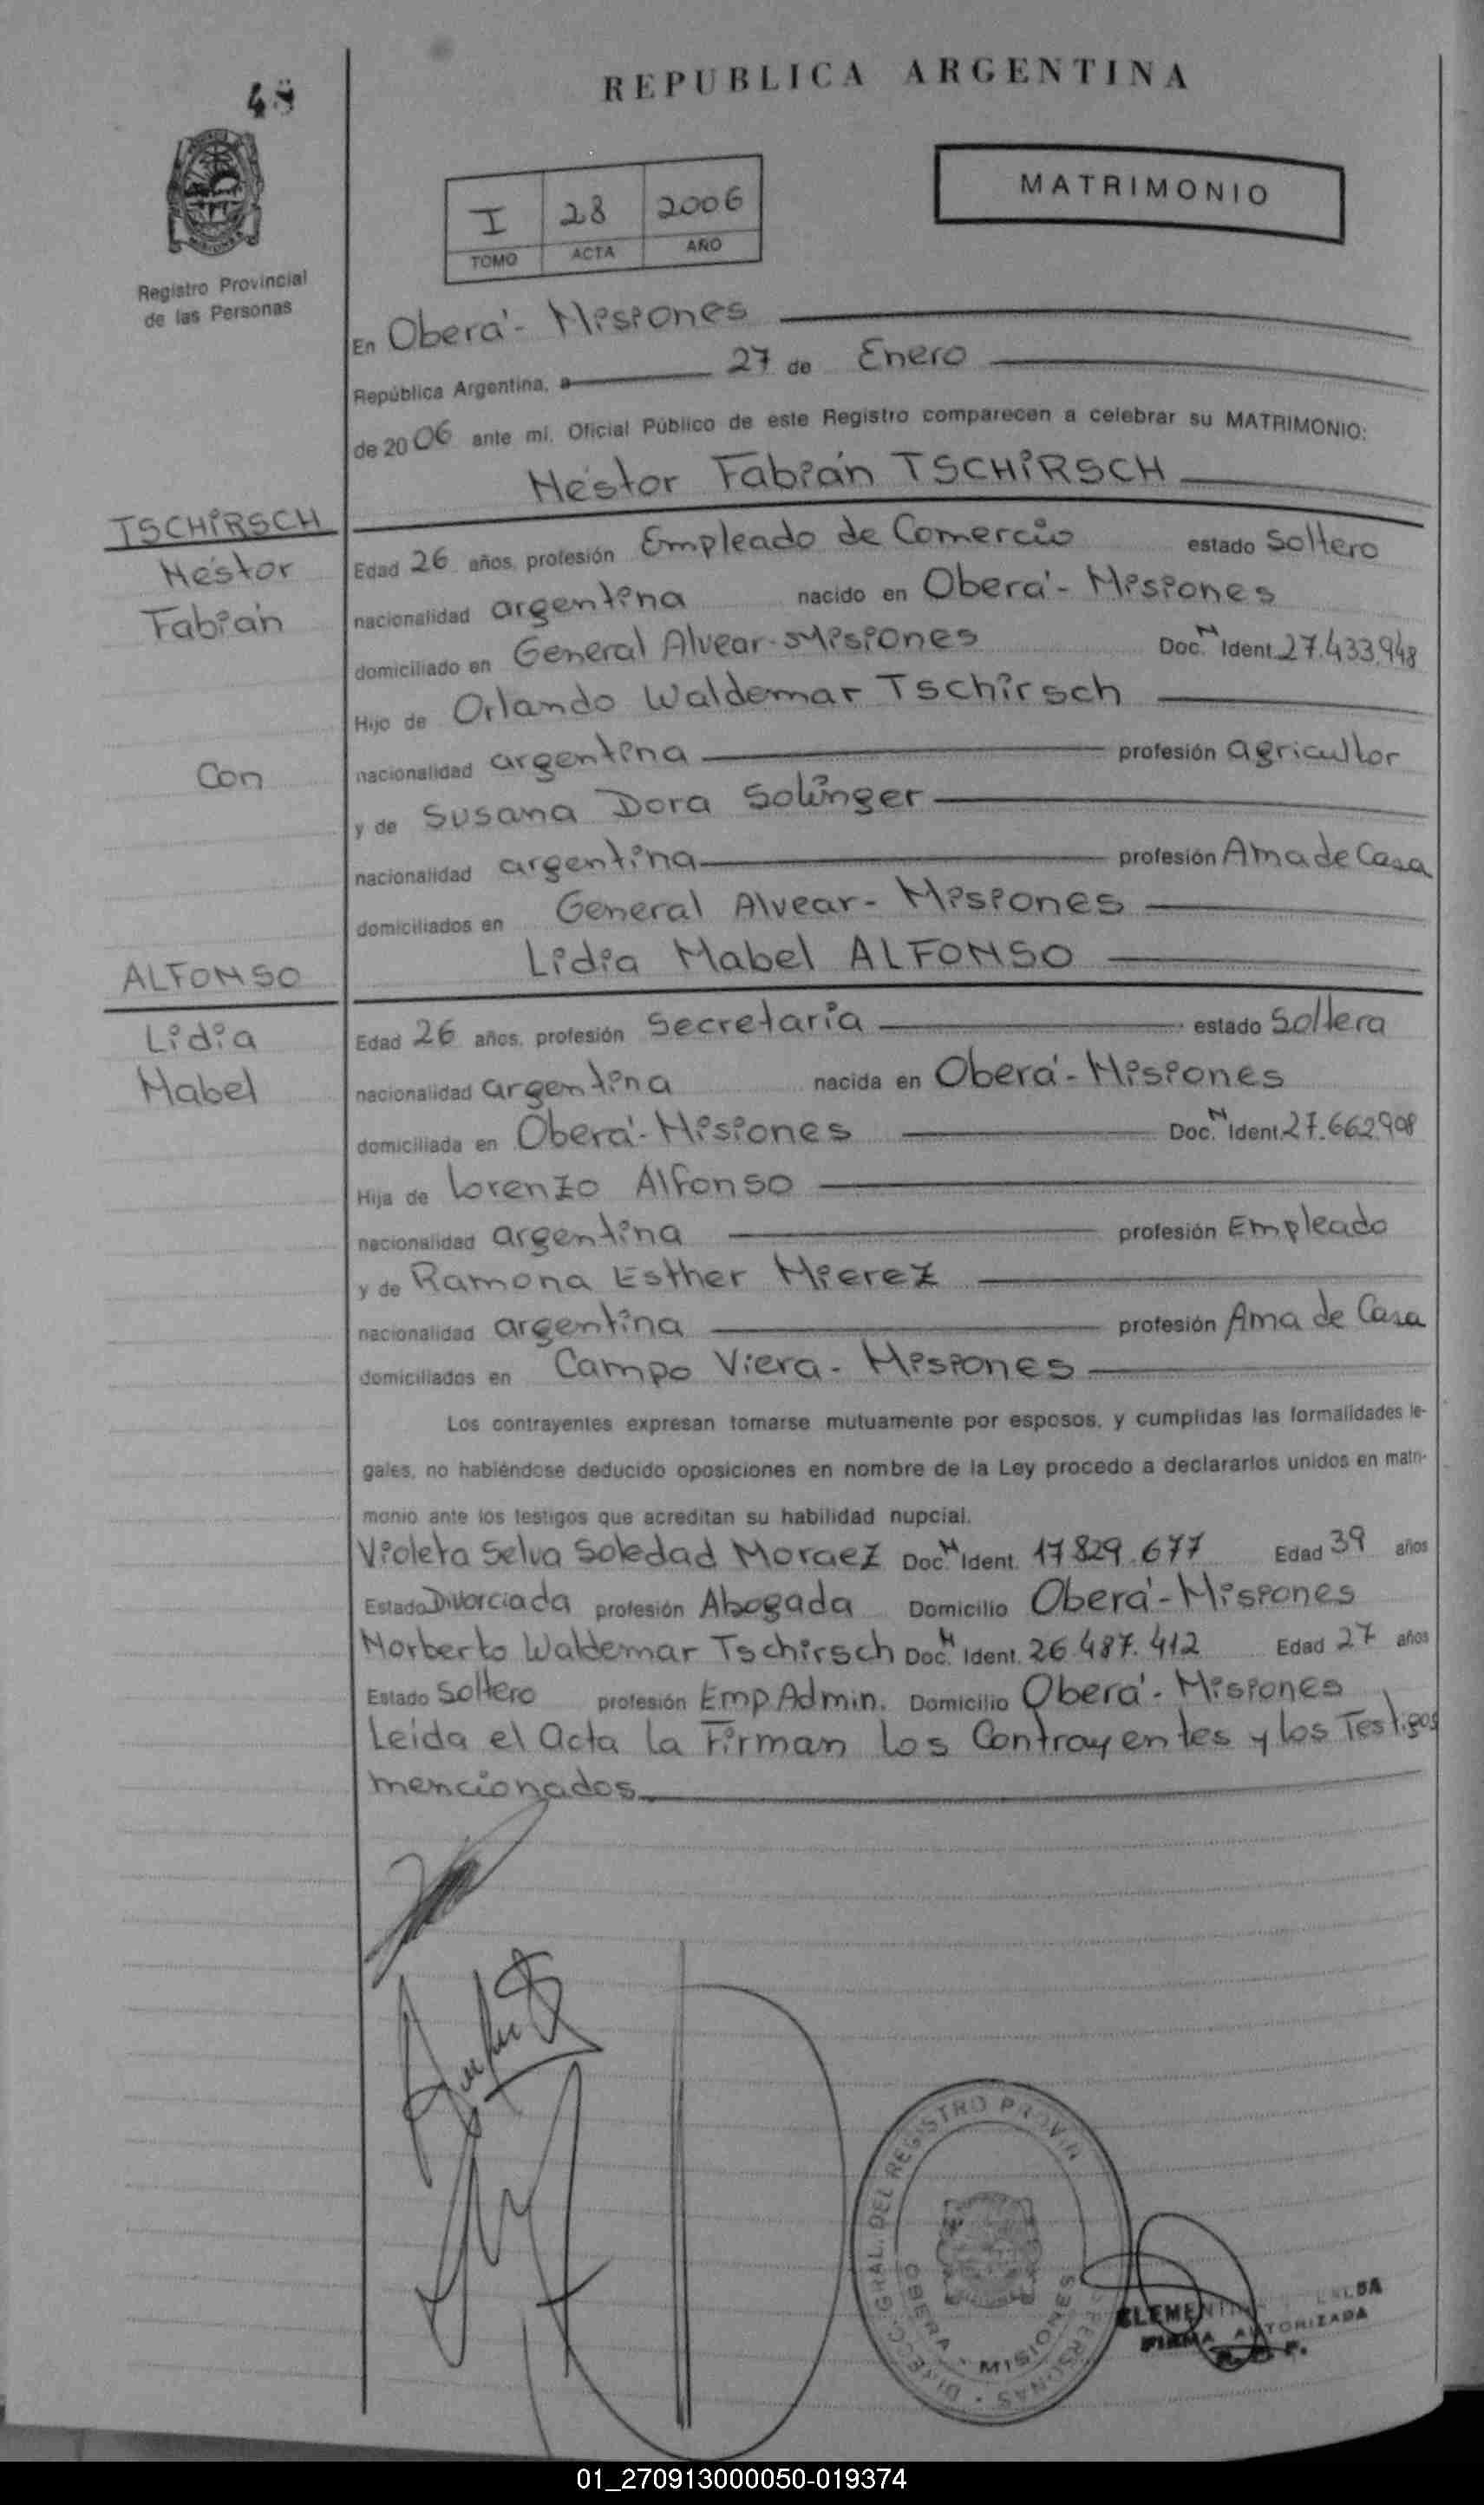 REPUBLICA ARGENTINA
MATRIMONIO
I 28 2006
TOMO ACTA AÑO
Registro Provincial
de las Personas
En Oberá - Misiones
República Argentina, a 27 de Enero
de 2006 ante mí, Oficial Público de este Registro comparecen a celebrar su MATRIMONIO:
Néstor Fabián TSCHIRSCH
TSCHIRSCH
Néstor
Fabián
Edad 26 años, profesión Empleado de Comercio estado Soltero
nacionalidad argentina nacido en Oberá - Misiones
domiciliado en General Alvear - Misiones Doc. N Ident. 27.433.948
Hijo de Orlando Waldemar Tschirsch
Con
nacionalidad argentina profesión agricultor
y de Susana Dora Solinger
nacionalidad argentina profesión Ama de Casa
domiciliados en General Alvear - Misiones
Lidia Mabel ALFONSO
ALFONSO
Lidia
Mabel
Edad 26 años, profesión Secretaria estado Soltera
nacionalidad argentina nacida en Oberá - Misiones
domiciliada en Oberá - Misiones Doc. N Ident. 27.662.908
Hija de Lorenzo Alfonso
nacionalidad argentina profesión Empleado
y de Ramona Esther Mierez
nacionalidad argentina profesión Ama de Casa
domiciliados en Campo Viera - Misiones
Los contrayentes expresan tomarse mutuamente por esposos, y cumplidas las formalidades le-
gales, no habiéndose deducido oposiciones en nombre de la Ley procedo a declararlos unidos en matri-
monio ante los testigos que acreditan su habilidad nupcial.
Violeta Selva Soledad Moraez Doc. N Ident. 17.829.677 Edad 39 años
Estado Divorciada profesión Abogada Domicilio Oberá - Misiones
Norberto Waldemar Tschirsch Doc. N Ident. 26.487.412 Edad 27 años
Estado Soltero profesión Emp Admin. Domicilio Oberá - Misiones
Leída el Acta la Firman los Contrayentes y los Testigos
mencionados
DIRECC. GRAL. DEL REGISTRO PROVIN
PERSONAS
OBERA - MISIONES
FIRMA AUTORIZADA
01_270913000050-019374